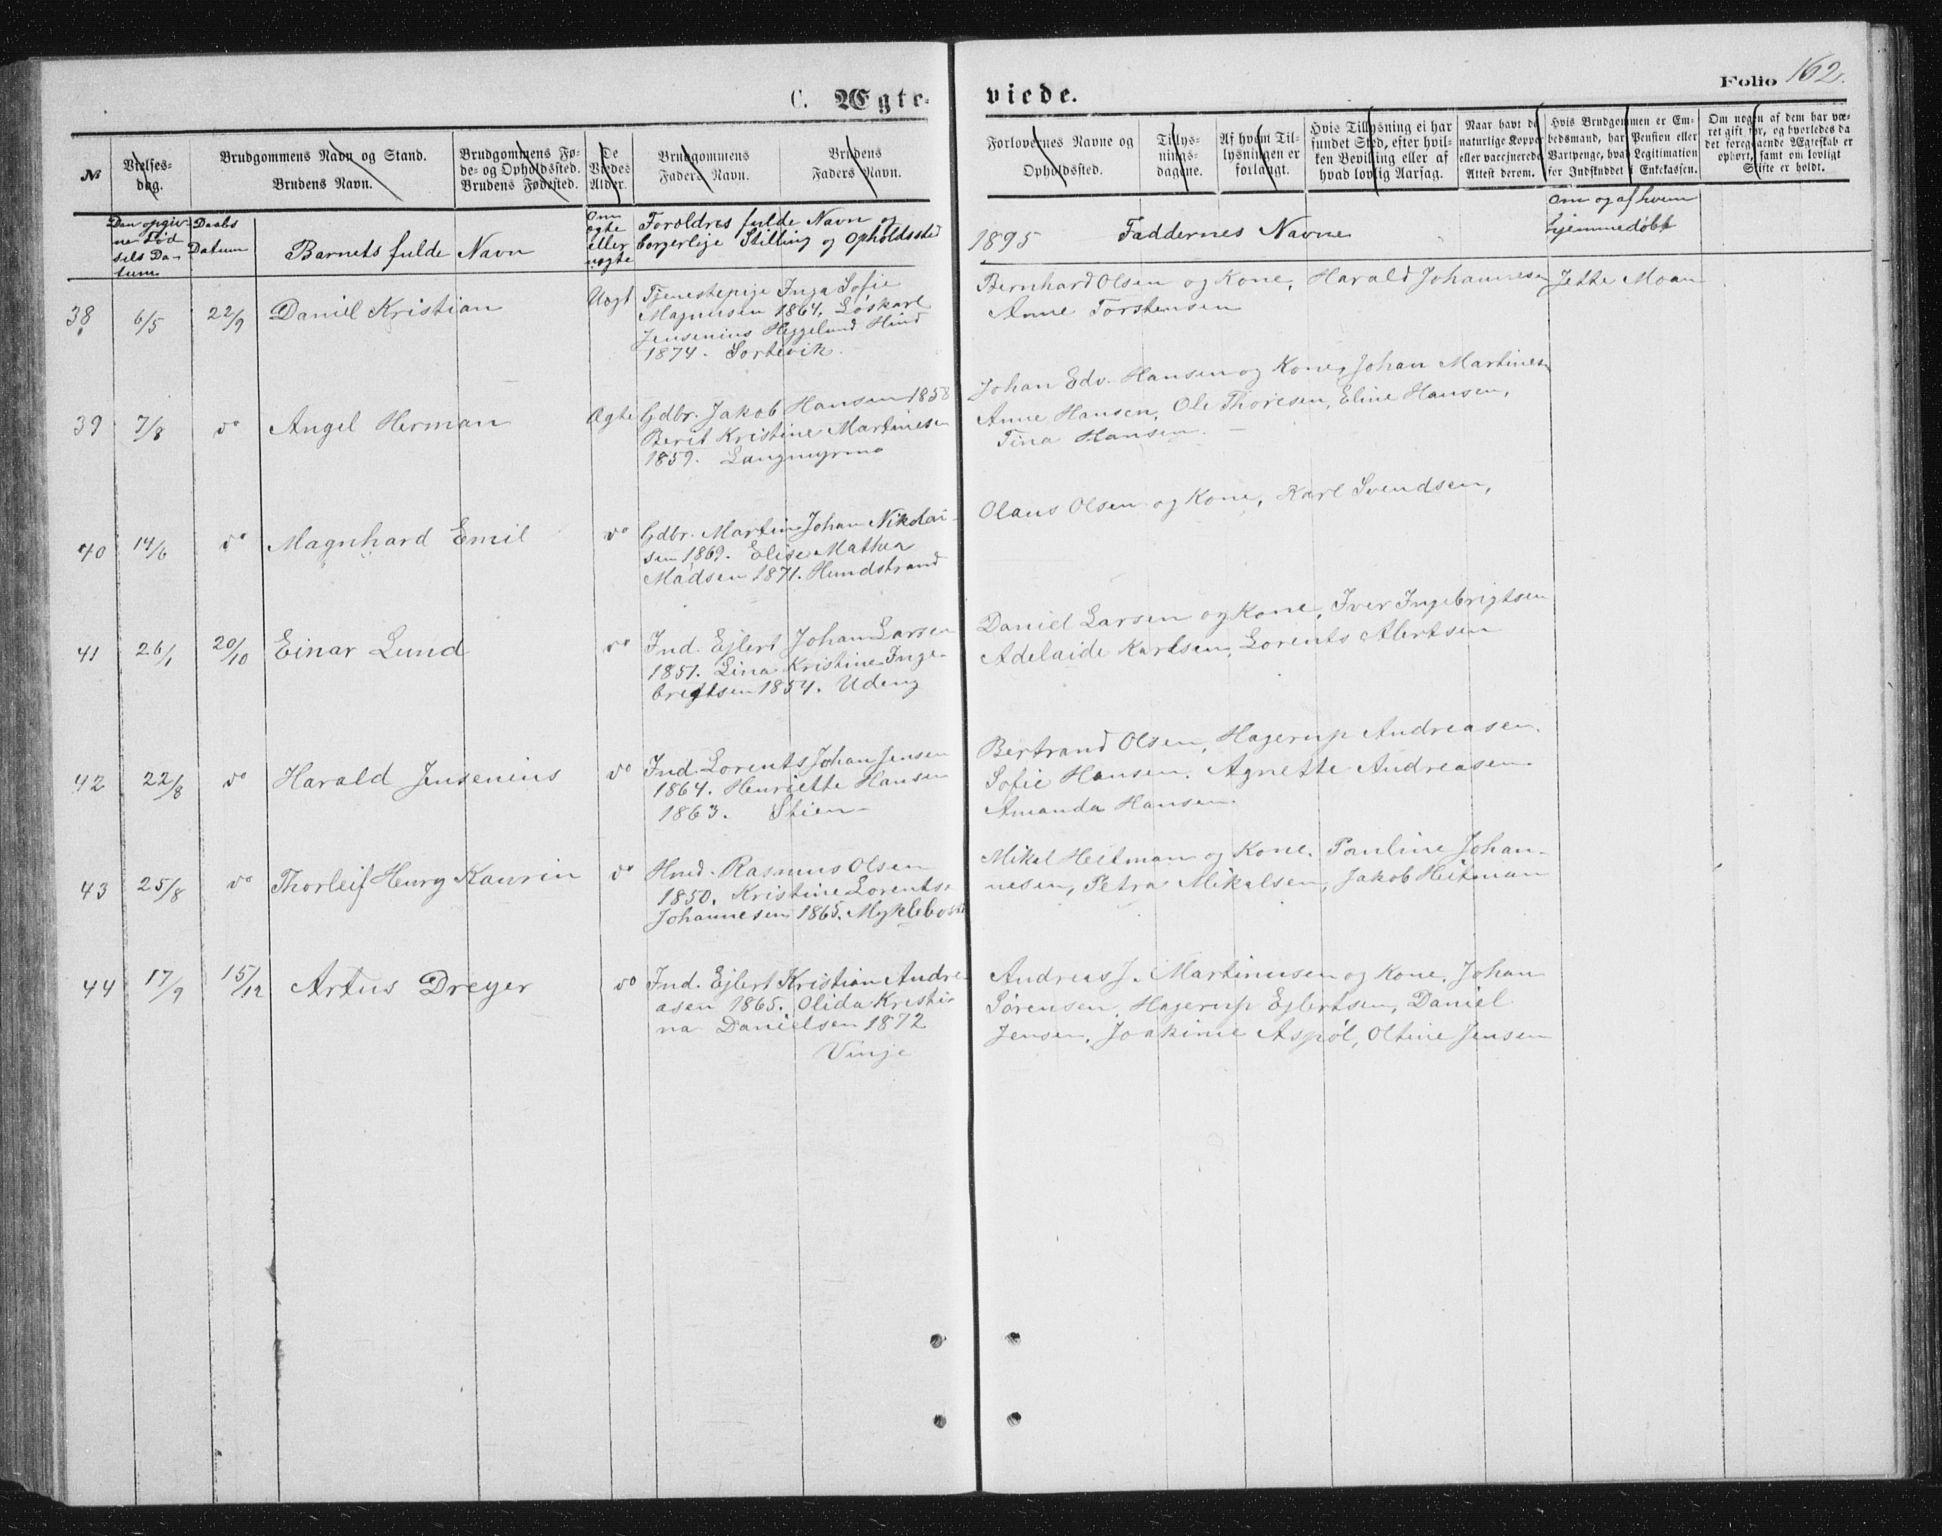 C. Ægte- viede.
Folio 162.
№
Vielses-
dag.
Brudgommens Navn og Stand.
Brudens Navn.
Brudgommens Fø-
de- og Opholdssted.
Brudens Fødested.
De
Viedes
Alder.
Brudgommens
Faders Navn.
Brudens
Faders Navn.
Forlovernes Navne og
Opholdssted.
Tillys-
nings-
dagene.
Af hvem Til-
lysningen er
forlangt.
Hvis Tillysning ei har
fundet Sted, efter hvil-
ken Bevilling eller af
hvad lovlig Aarsag.
Naar havt de
naturlige Kopper
eller vaccinerede.
Attest derom.
Hvis Brudgommen er Em-
bedsmand, har Pension eller
Vartpenge, hvad Legitimation
for Indskuddet i Enkekassen.
Om nogen af dem har væ-
ret gift før, og hvorledes da
det foregaaende Ægteskab er
ophørt, samt om lovligt
Skifte er holdt.
Den opgiv-
ne Fød
sels Da-
tum
Daabs
Datum
Barnets fulde Navn
Om
ægte
eller
uægte
Forældres fulde Navn og
borgerlige Stilling og Opholdssted
1895
Faddernes Navne
Om og af hvem
hjemmedøbt
38 6/5 22/9 Daniel Kristian Uægt Tjenestepige Inga Sofie
Magnusen 1864. Løskarl
Jensenius Heggelund Hind
1874. Sortevik.
Bernhard Olsen og Kone, Harald Johannesen Jette Moan
Anne Torstensen
39 7/8 do Angel Herman Ægte Gdbr. Jakob Hansen 1858
Berit Kristine Martinesen
1859. Langmyrmo
Johan Edv. Hansen og Kone, Johan Martinesen
Anne Hansen, Ole Thoresen, Eline Hansen,
Tina Hansen.
40 14/6 do Magnhard Emil do Gdbr. Martin Johan Nikolai-
sen 1869. Elise Mathea
Madsen 1871. Hundstrand
Olaus Olsen og Kone, Karl Svendsen,
41 26/1 20/10 Einar Lund do Ind. Ejlert Johan Larsen
1851. Lina Kristine Inge-
brigtsen 1854. Udeng
Daniel Larsen og Kone, Iver Ingebrigtsen
Adelaide Karlsen, Lorents Albertsen
42 22/8 do Harald Jensenius do Ind. Lorents Johan Jensen
1864. Henriette Hansen
1863. Stien
Bertrand Olsen, Hagerup Andreasen.
Sofie Hansen. Agnette Andreasen.
Amanda Hansen.
43 25/8 do Thorleif Henry Kaurin do Hmd. Rasmus Olsen
1850. Kristine Lorentse
Johannesen 1865. Myklebost
Mikal Heitman og Kone. Pauline Johan-
nesen, Petra Mikalsen, Jakob Heitman
44 17/9 15/12 Artus Dreyer do Ind. Ejlert Kristian Andre-
asen 1865. Olida Kristi-
na Danielsen 1872
Vinje
Andreas J. Martinusen og Kone. Johan
Sørensen, Hagerup Ejlertsen, Daniel
Jensen, Joakime Aspøl, Oltine Jensen